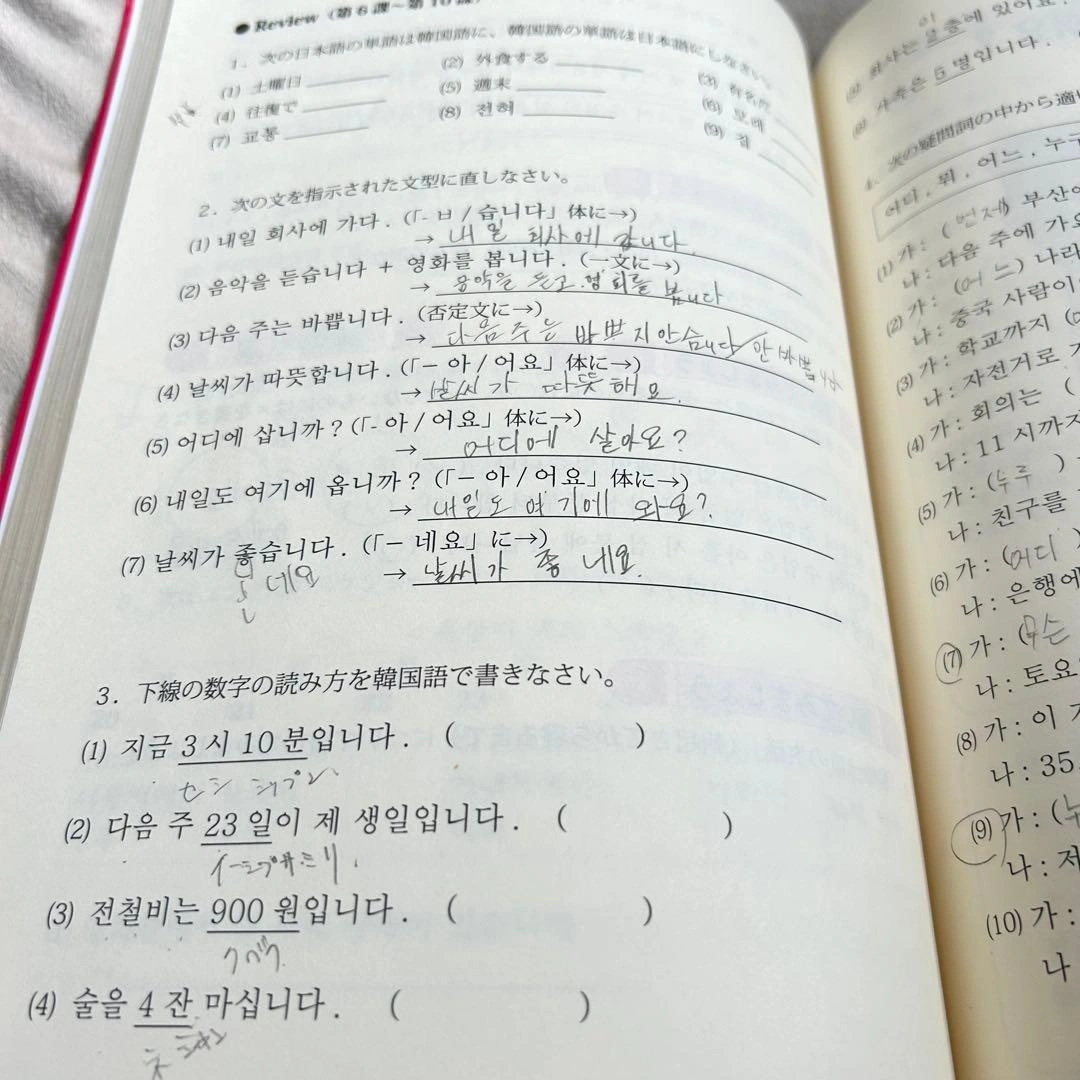 ● Review（第6課～第10課）
1．次の日本語の単語は韓国語に、韓国語の単語は日本語にしなさい。
(1) 土曜日 (2) 外食する (3)
(4) 往復で (5) 週末 (6) 모레
(7) 交通 (8) 전혀 (9) 집
2．次の文を指示された文型に直しなさい。
(1) 내일 회사에 가다．(「- ㅂ / 습니다」体に→)
→ 내일 회사에 갑니다
(2) 음악을 듣습니다 + 영화를 봅니다．(一文に→)
→ 음악을 듣고 영화를 봅니다
(3) 다음 주는 바쁩니다．(否定文に→)
→ 다음 주는 바쁘지 안습니다/안 바쁩니다
(4) 날씨가 따뜻합니다．(「－ 아 / 어요」体に→)
→ 날씨가 따뜻해요.
(5) 어디에 삽니까？(「- 아 / 어요」体に→)
→ 어디에 살아요?
(6) 내일도 여기에 옵니까？(「－ 아 / 어요」体に→)
→ 내일도 여기에 와요?
(7) 날씨가 좋습니다．(「－ 네요」に→)
네요
→ 날씨가 좋네요.
3．下線の数字の読み方を韓国語で書きなさい。
(1) 지금 3 시 10 분입니다． ( )
セシ シップン
(2) 다음 주 23 일이 제 생일입니다． ( )
(3) 전철비는 900 원입니다． ( )
クベク
(4) 술을 4 잔 마십니다． ( )
(8) 회사는 2 층에 있어요.
이
(9) 가족은 5 명입니다.
4．次の疑問詞の中から適
어디，뭐，어느，누구
(1) 가：(언제) 부산에
나：다음 주에 가요
(2) 가：(어느) 나라
나：중국 사람이
(3) 가：학교까지 (
나：자전거로
(4) 가：회의는 (
나：11 시까지
(5) 가：(누구)
나：친구를
(6) 가：(어디)
나：은행에
(7) 가：(무슨
나：토요
(8) 가：이
나：35,
(9) 가：(누
나：저
(10) 가：
나